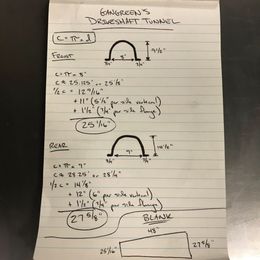 GANGREEN'S
DRIVESHAFT TUNNEL
C = π × d
FRONT
9 1/2"
3/4" 8" 3/4"
C = π × 8"
C ≈ 25.125" or 25 1/8"
1/2 C = 12 9/16"
+ 11" (5 1/2" per side vertical)
+ 1 1/2" (3/4" per side flange)
25 1/16"
REAR
10 1/2"
3/4" 9" 3/4"
C = π × 9"
C ≈ 28.25" or 28 1/4"
1/2 C = 14 1/8"
+ 12" (6" per side vertical)
+ 1 1/2" (3/4" per side flange)
27 5/8"
BLANK
48"
25 1/16"
27 5/8"